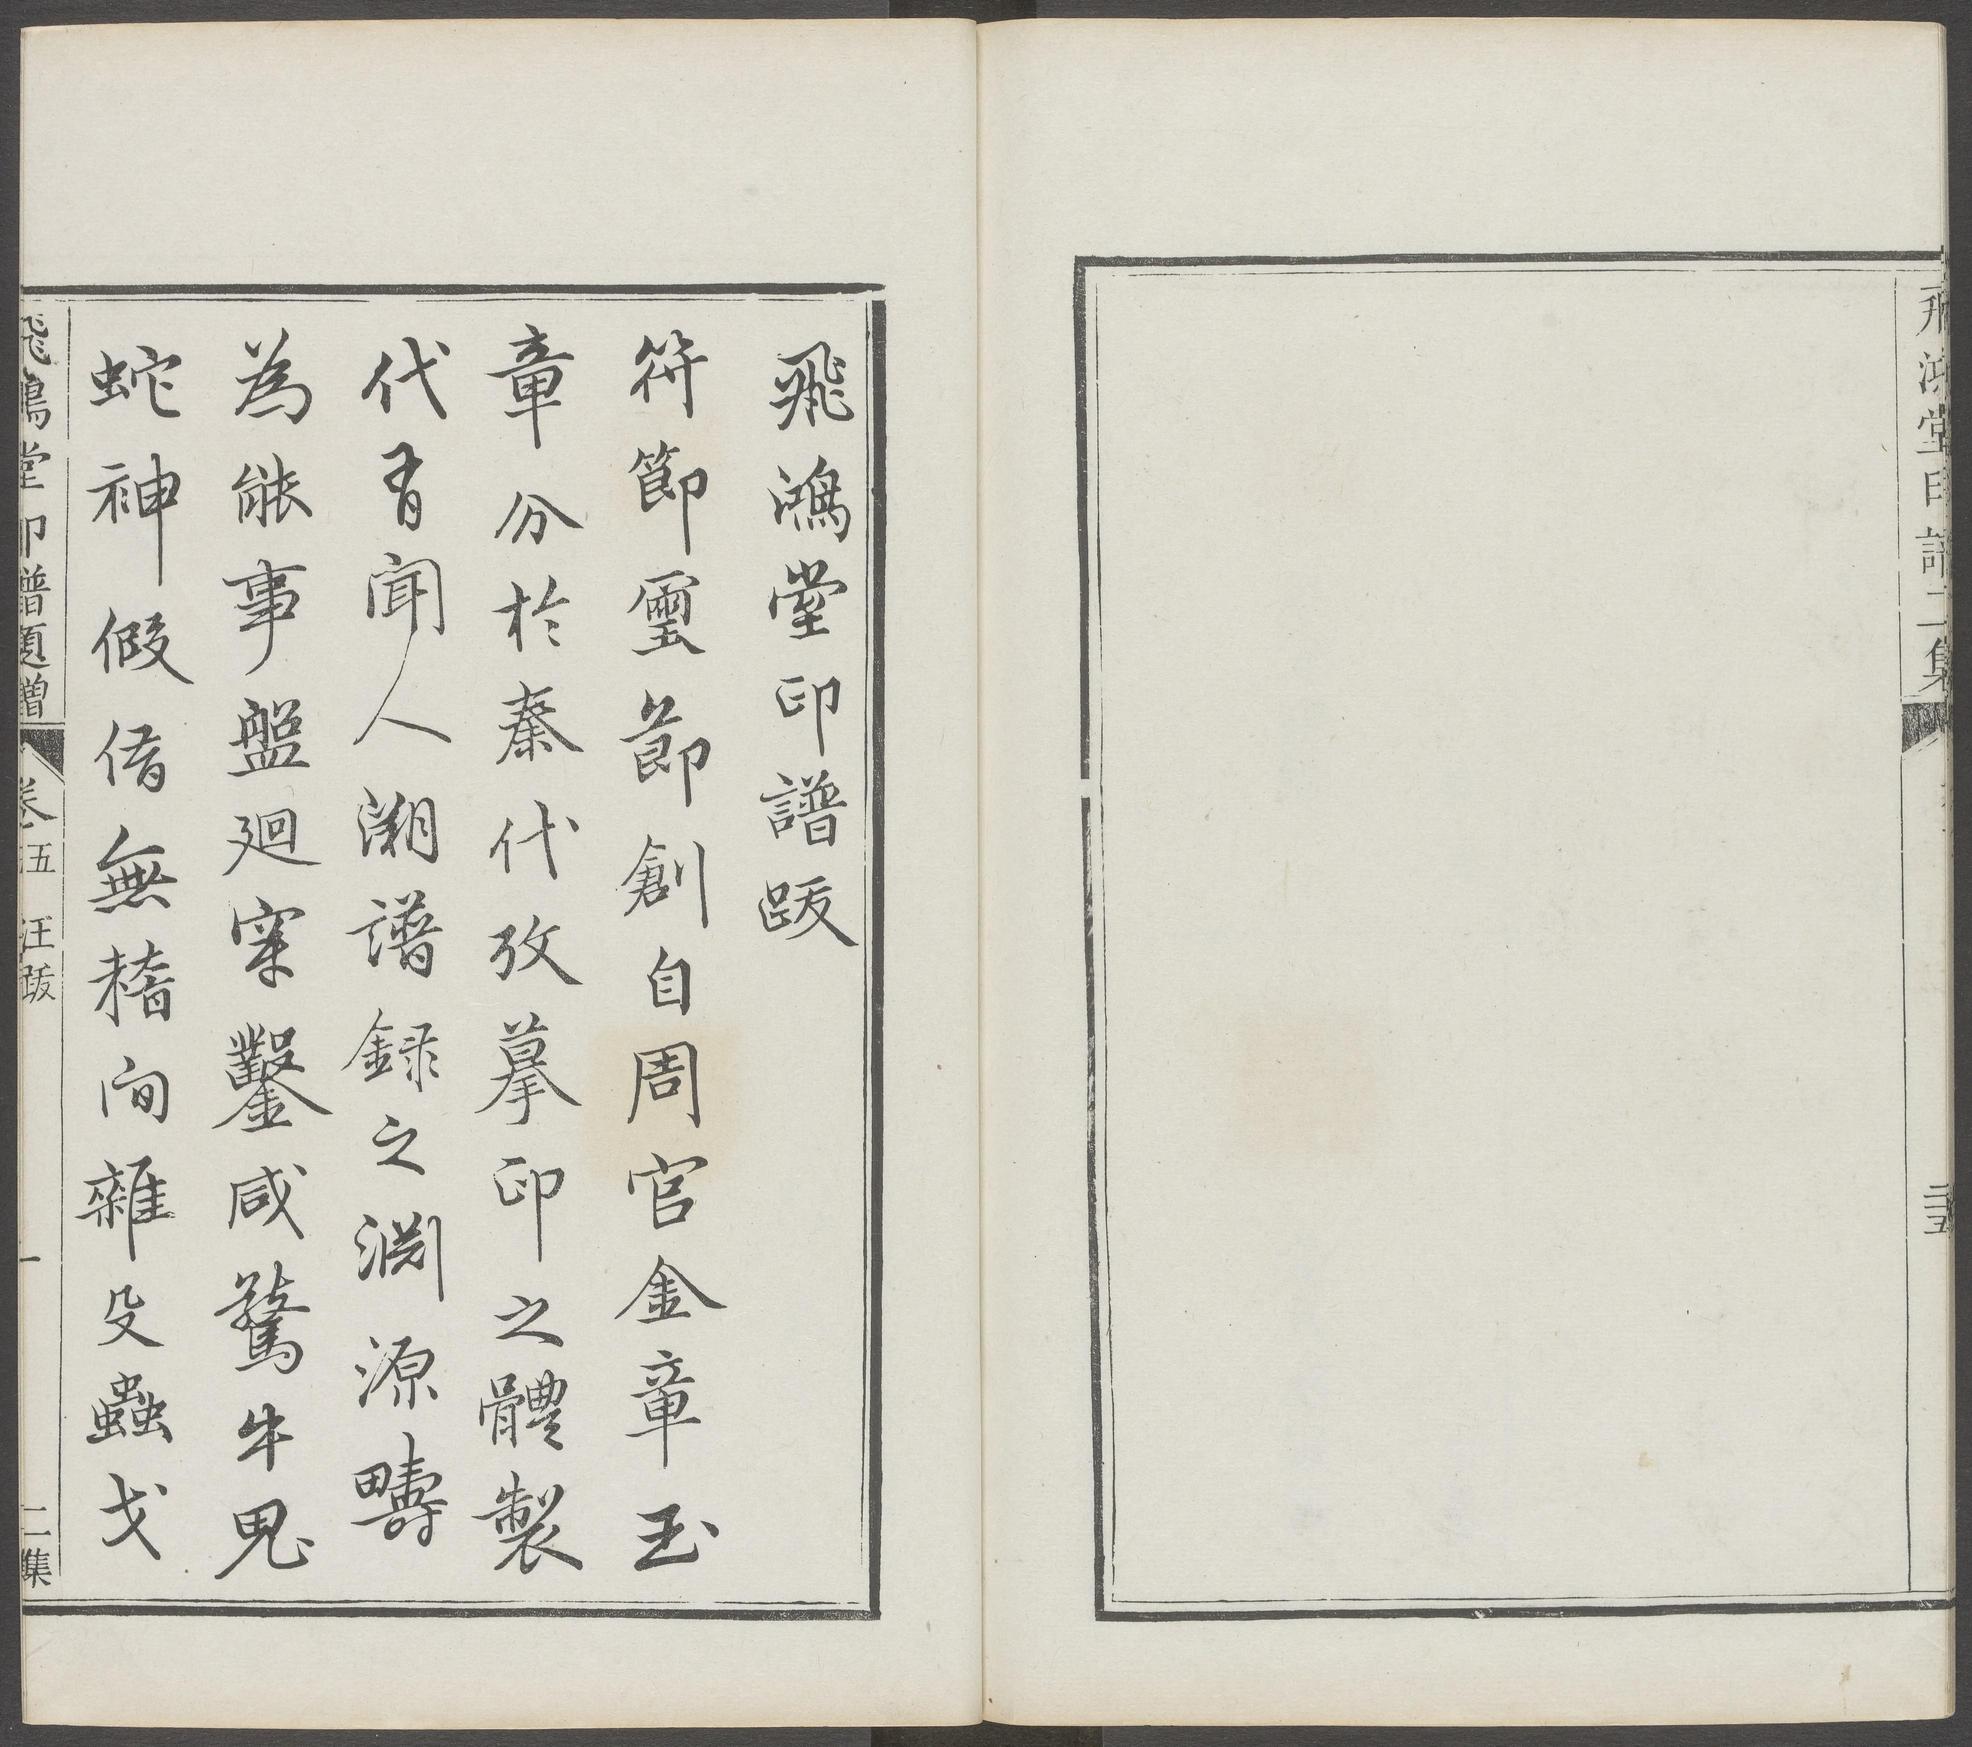 飛鴻堂印譜二集
二五
飛鴻堂印譜跋
符節璽節創自周官金章玉
章分於秦代攷摹印之體製
代有聞人溯譜録之淵源疇
為能事盤廻穿鑿咸驚牛鬼
蛇神假借無稽間雜殳蟲戈
飛鴻堂印譜題贈 卷五 汪跋 一 二集